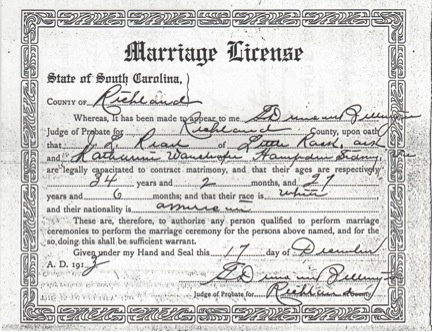 Marriage License
State of South Carolina,
COUNTY OF Richland
Whereas, It has been made to appear to me
Judge of Probate for Richland County, upon oath
that J. Read of Little Rock, Ark
and Katharine of Hampden Sidney,
are legally capacitated to contract matrimony, and that their ages are respectively
34 years and 2 months, and 21
years and 6 months; and that their race is white
and their nationality is american
These are, therefore, to authorize any person qualified to perform marriage
ceremonies to perform the marriage ceremony for the persons above named, and for the
so doing this shall be sufficient warrant.
Given under my Hand and Seal this 17 day of December
A. D. 191
Judge of Probate for Richland County